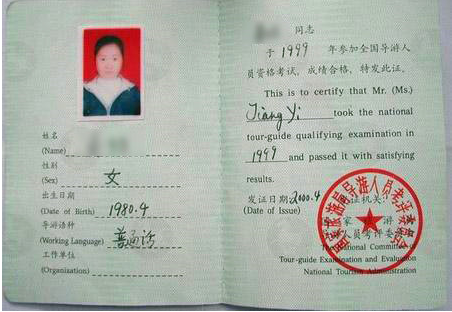 姓名
(Name)
性别
(Sex) 女
出生日期
(Date of Birth) 1980.4
导游语种
(Working Language) 普通话
工作单位
(Organization)
同志
于 1999 年参加全国导游人
员资格考试，成绩合格，特发此证。
This is to certify that Mr. (Ms.)
Jiang Yi took the national
tour-guide qualifying examination in
1999 and passed it with satisfying
results.
发证日期: 2000.4 发证机关:
(Date of Issue)
The National Committee of
Tour-guide Examination and Evaluation
National Tourism Administration